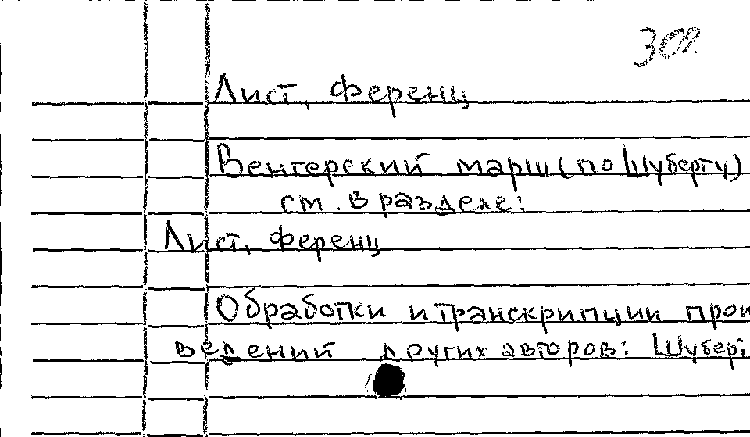 Лист, Ференц
Венгерский марш (по Шуберту)
см. в разделе:
Лист, Ференц
Обработки и транскрипции прои
ведений других авторов: Шубер